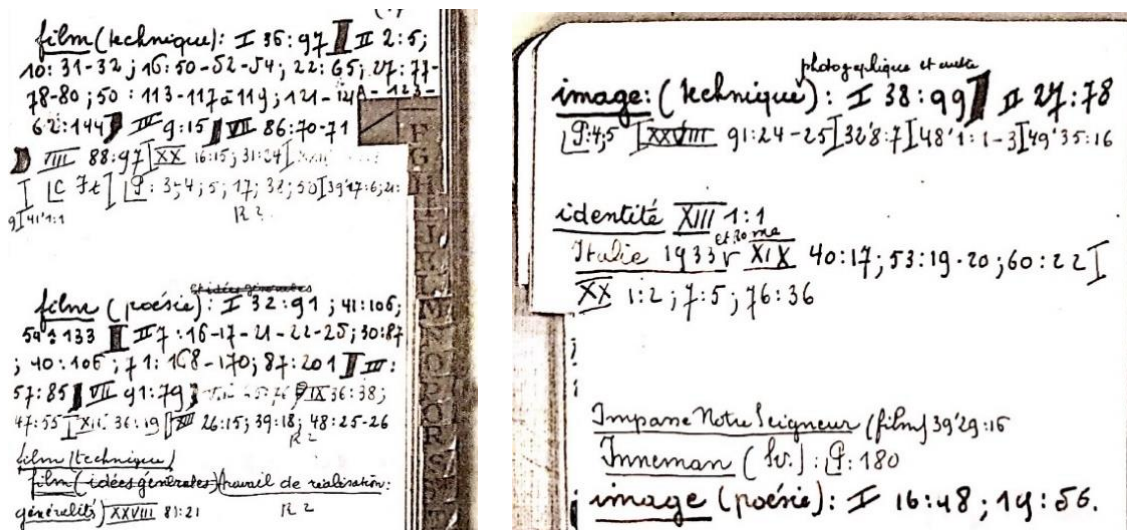 film (technique): I 36:97 II 2:5;
10:31-32; 16:50-52-54; 22:65; 27:77-
78-80; 50:113-117 à 119; 121-121A-123-
62:144 IV 9:15 VII 86:70-71
VIII 88:97 XX 16:15; 31:24
P: 3; 4; 5; 17; 38; 50 39'17:6; 21:
9 41'1:1 R 2
et idées générales
film (poésie): I 32:91; 41:106;
59:133 II 7:16-17-21-22-25; 30:87
; 40:106; 71:168-170; 87:201 III:
57:85 VII 91:79 IX 36:38;
47:55 XII 36:19 XIII 26:15; 39:18; 48:25-26
R 2
film (technique)
film (idées générales) (travail de réalisation:
généralités) XXVIII 81:21 R 2
F
G
H
I
J
K
L
M
N
O
P
Q
R
S
photographique et
image: (technique): I 38:99 II 27:78
P: 4; 5 XXVIII 91:24-25 32'8:7 48'1:1-3 49'35:16
identité XIII 1:1
et Rome
Italie 1933 XIX 40:17; 53:19-20; 60:22
XX 1:2; 7:5; 76:36
Impasse Notre Seigneur (film) 39'29:16
Inneman (Sv.): P: 180
image (poésie): I 16:48; 19:56.